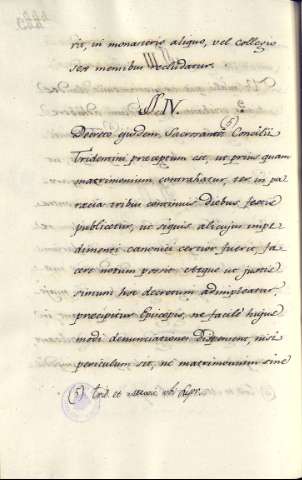 rit, in monasterio aliquo, vel collegio
sex mensibus recludatur.
§. IV.
Decreto ejusdem Sacrosancti (5) Concilii
Tridentini præceptum est, ut prius quam
matrimonium contrahatur, ter in pa-
rœcia tribus continuis diebus festis
publicetur, ut siquis alicujus impe-
dimenti canonici certior fuerit, fa-
cere notum possit. Atque ut justis-
simum hoc decretum adimpleatur,
præcipitur Episcopis, ne facile hujus
modi denunciatione dispensent, nisi
periculum sit, ne matrimonium sine
(5). Trid. et ubi supr.